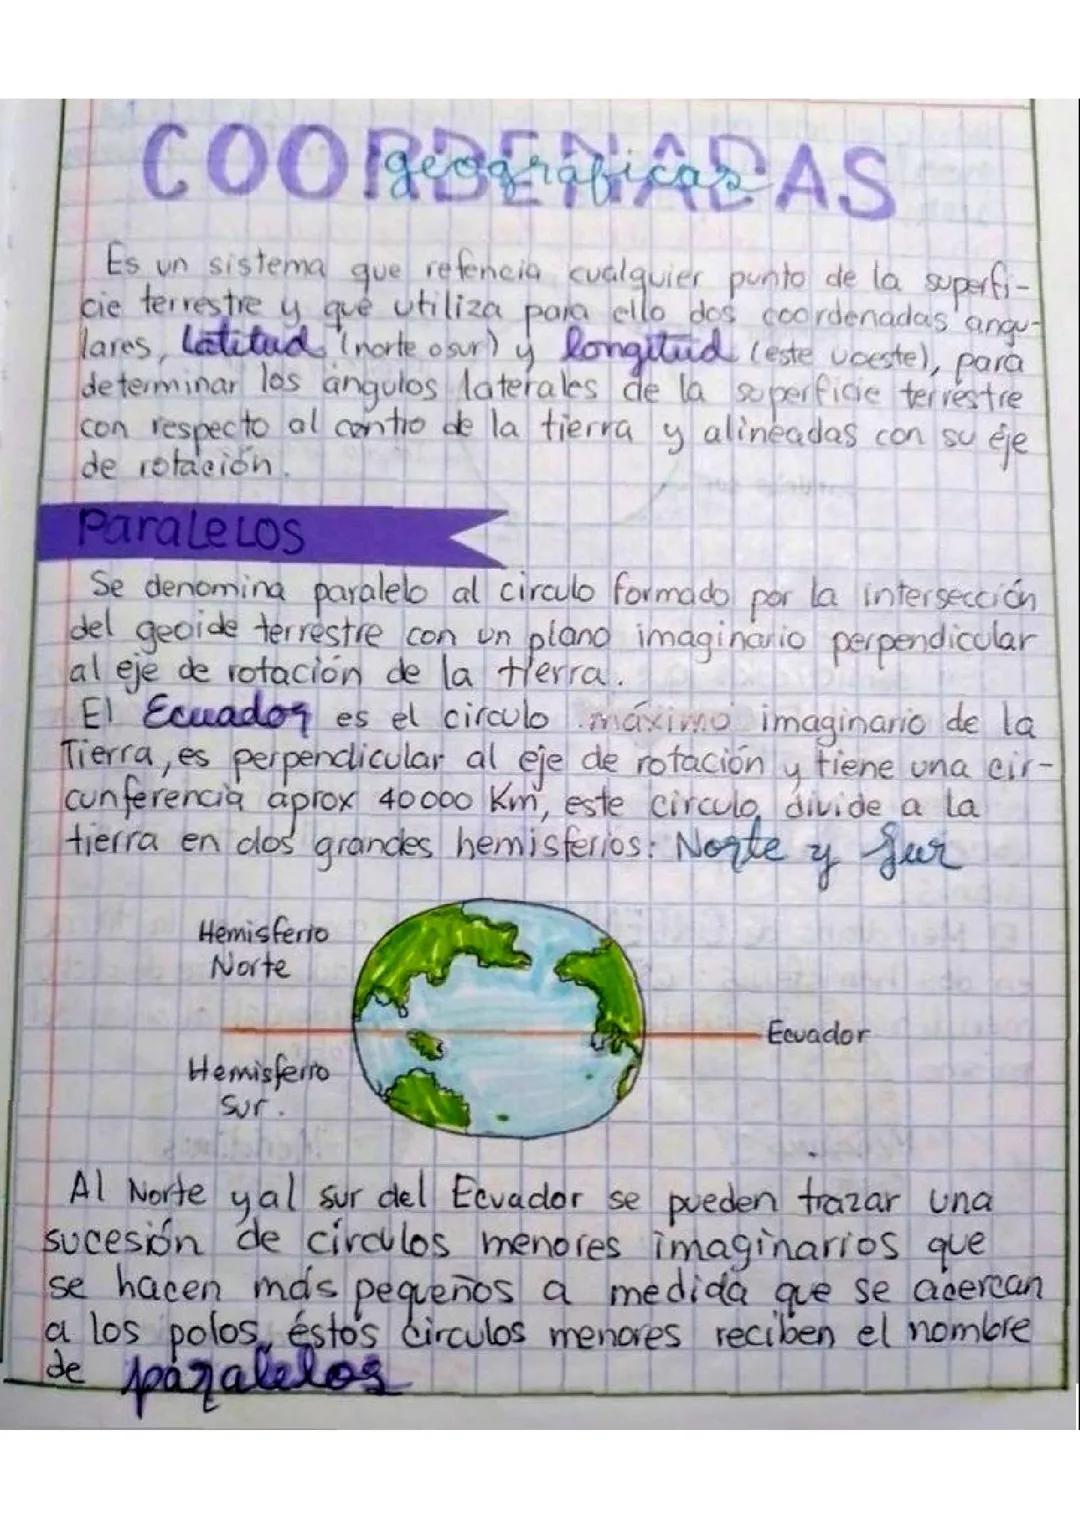 COORDENADAS
geográficas
Es un sistema que refencia cualquier punto de la superfi-
cie terrestre y que utiliza para ello dos coordenadas angu-
lares, latitud (norte o sur) y longitud (este u oeste), para
determinar los ángulos laterales de la superficie terrestre
con respecto al centro de la tierra y alineadas con su eje
de rotación.
Paralelos
Se denomina paralelo al circulo formado por la intersección
del geoide terrestre con un plano imaginario perpendicular
al eje de rotación de la tierra.
El Ecuador es el circulo máximo imaginario de la
Tierra, es perpendicular al eje de rotación y tiene una cir-
cunferencia aprox 40000 Km, este circulo divide a la
tierra en dos grandes hemisferios: Norte y Sur
Hemisferio
Norte
Ecuador
Hemisferio
Sur.
Al Norte y al sur del Ecuador se pueden trazar una
sucesión de círculos menores imaginarios que
se hacen más pequeños a medida que se acercan
a los polos, éstos circulos menores reciben el nombre
de paralelos